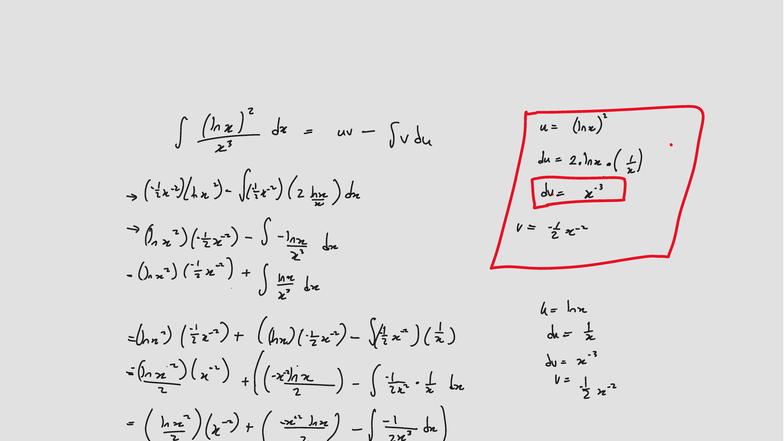 ∫ (lnx)²/x³ dx = uv − ∫v du
→ (-1/2 x⁻²)(lnx²) − ∫(-1/2 x⁻²)(2 lnx/x) dx
→ (lnx²)(-1/2 x⁻²) − ∫ -lnx/x³ dx
= (lnx²)(-1/2 x⁻²) + ∫ lnx/x³ dx
= (lnx²)(-1/2 x⁻²) + ((lnx)(-1/2 x⁻²) − ∫(-1/2 x⁻²)(1/x)
= (lnx⁻²/2)(x⁻²) + ((-x⁻² lnx/2) − ∫ -1/2x² · 1/x dx
= (lnx²/2)(x⁻²) + (-x⁻² lnx/2) − ∫ -1/2x³ dx)
u = (lnx)²
du = 2·lnx·(1/x)
dv = x⁻³
v = -1/2 x⁻²
u = lnx
du = 1/x
dv = x⁻³
v = -1/2 x⁻²